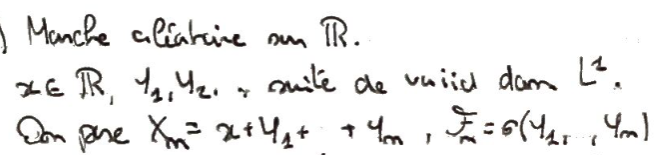 ) Marche aléatoire sur ℝ.
x ∈ ℝ, Y₁, Y₂. , suite de vaiid dans L¹.
On pose Xₙ = x + Y₁ + + Yₙ , ℱₙ = σ(Y₁, , Yₙ)